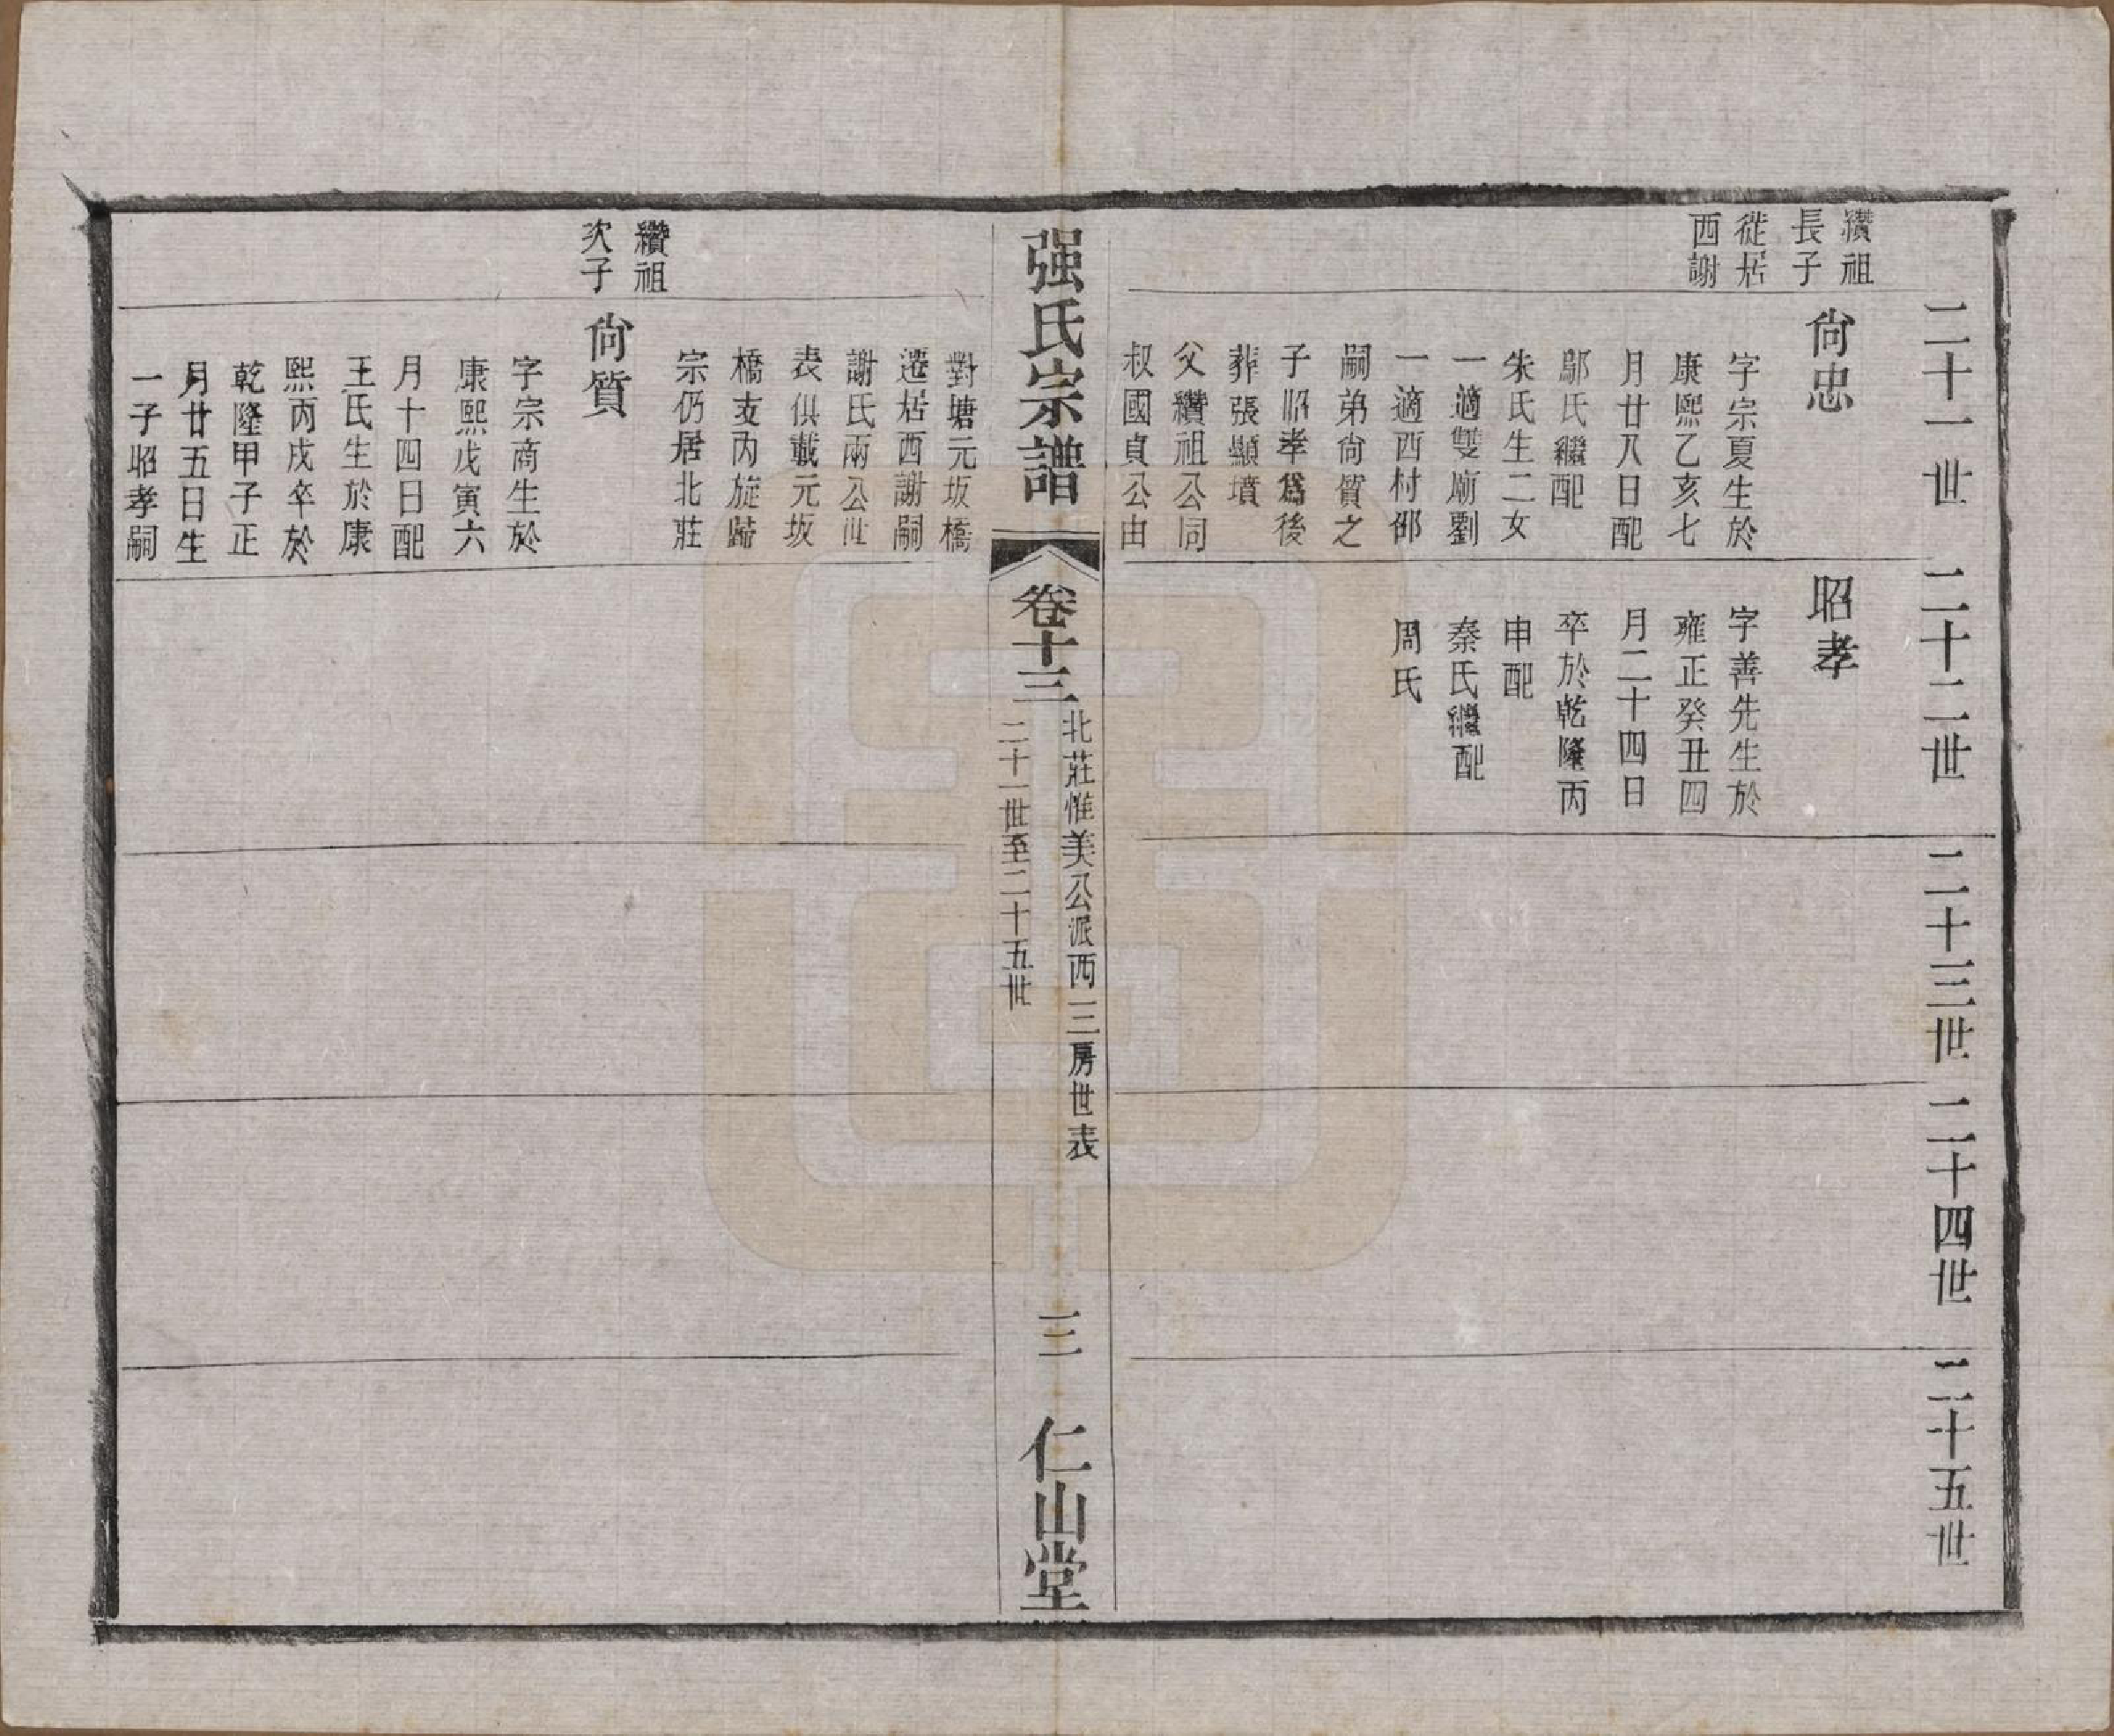 二十一世
二十二世
二十三世
二十四世
二十五世
纘祖
長子
從居
西謝
尙忠
字宗夏生於
康熙乙亥七
月廿八日配
鄔氏繼配
朱氏生二女
一適雙廟劉
一適西村邵
嗣弟尙質之
子昭孝爲後
葬張顯墳
父纘祖公同
叔國貞公由
昭孝
字善先生於
雍正癸丑四
月二十四日
卒於乾隆丙
申配
秦氏繼配
周氏
强氏宗譜
卷十三
北莊惟美公派西三房世表
二十一世至二十五世
三
仁山堂
對塘元坂橋
遷居西謝嗣
謝氏兩公世
表俱載元坂
橋支丙旋歸
宗仍居北莊
纘祖
次子
尙質
字宗商生於
康熙戊寅六
月十四日配
王氏生於康
熙丙戌卒於
乾隆甲子正
月廿五日生
一子昭孝嗣